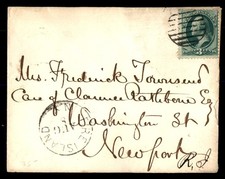 Mrs. Frederick Townsend
Care of Clarence Rathbone Esq
Washington St
Newport
R.I
ISLAND
3